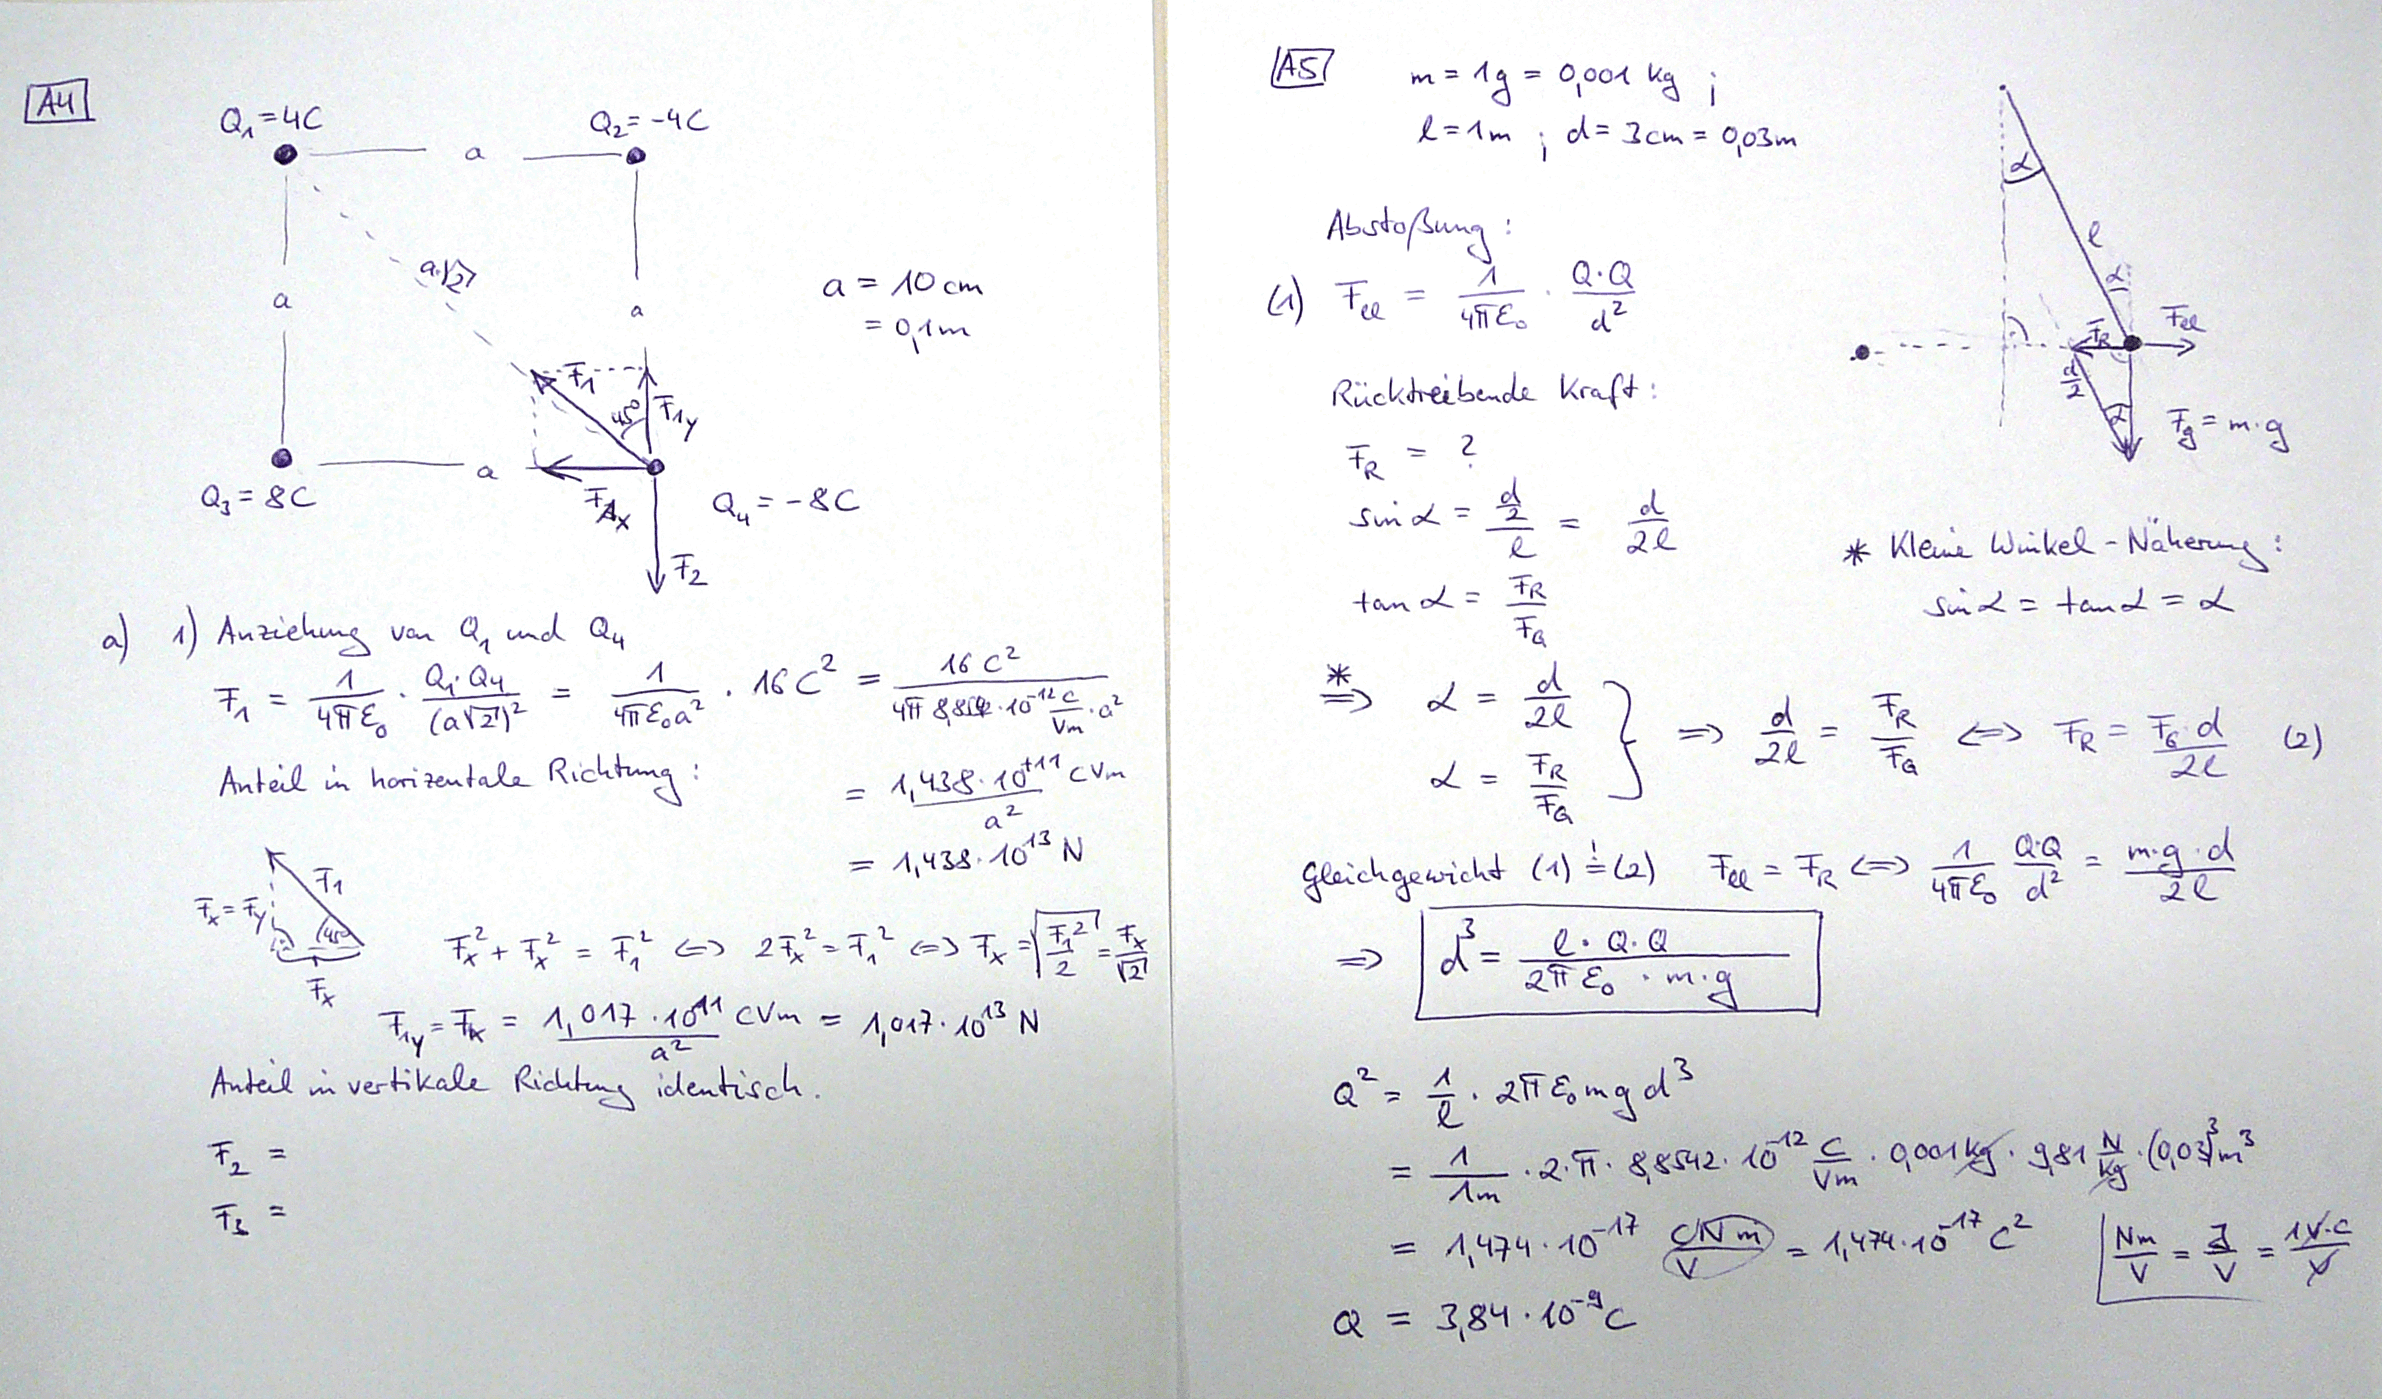 A4
Q₁ = 4C
Q₂ = -4C
a
a·√2
a
a
a = 10 cm
= 0,1m
F₁
45°
F₁y
a
F₁x
Q₃ = 8C
Q₄ = -8C
F₂
a) 1) Anziehung von Q₁ und Q₄
F₁ = 1/(4πε₀) · (Q₁·Q₄)/(a√2)² = 1/(4πε₀a²) · 16C² = 16C²/(4π 8,854·10⁻¹² C/Vm · a²)
Anteil in horizontale Richtung:
= (1,438·10⁺¹¹)/a² CVm
= 1,438·10¹³ N
F₁
Fx = Fy
45°
Fx
Fx² + Fx² = F₁² ⇔ 2Fx² = F₁² ⇔ Fx = √(F₁²/2) = Fx/√2
F₁y = Fx = (1,017·10¹¹)/a² CVm = 1,017·10¹³ N
Anteil in vertikale Richtung identisch.
F₂ =
F₃ =
A5
m = 1g = 0,001 kg ;
l = 1m ; d = 3cm = 0,03m
Abstoßung:
(1) Fel = 1/(4πε₀) · (Q·Q)/d²
Rücktreibende Kraft:
F_R = ?
sin α = (d/2)/l = d/(2l)
tan α = F_R/F_G
α
l
α
Fel
F_R
d/2
α
Fg = m·g
* Kleine Winkel-Näherung:
sin α = tan α = α
*⇒ α = d/(2l)
α = F_R/F_G } ⇒ d/(2l) = F_R/F_G ⇔ F_R = (F_G·d)/(2l) (2)
Gleichgewicht (1) ≟ (2) Fel = F_R ⇔ 1/(4πε₀) (Q·Q)/d² = (m·g·d)/(2l)
⇒ d³ = (l·Q·Q)/(2πε₀·m·g)
Q² = 1/l · 2πε₀mgd³
= 1/(1m) · 2·π·8,8542·10⁻¹² C/Vm · 0,001kg · 9,81 N/kg · (0,03)³m³
= 1,474·10⁻¹⁷ CNm/V = 1,474·10⁻¹⁷ C²
Nm/V = J/V = 1V·C/V
Q = 3,84·10⁻⁹C